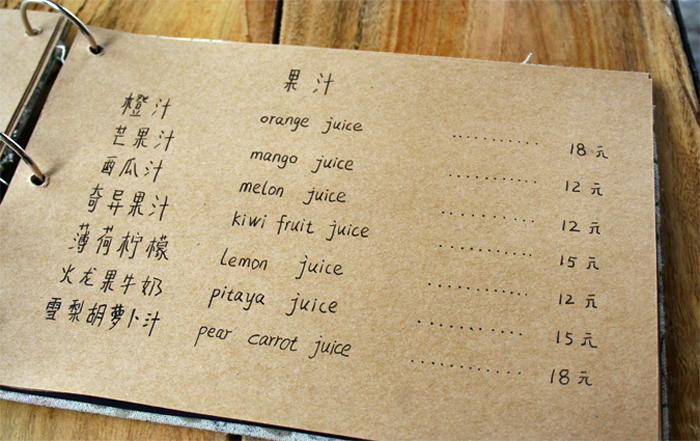 果汁
橙汁 orange juice .......... 18元
芒果汁 mango juice .......... 12元
西瓜汁 melon juice .......... 12元
奇异果汁 kiwi fruit juice .......... 15元
薄荷柠檬 Lemon juice .......... 12元
火龙果牛奶 pitaya juice .......... 15元
雪梨胡萝卜汁 pear carrot juice .......... 18元